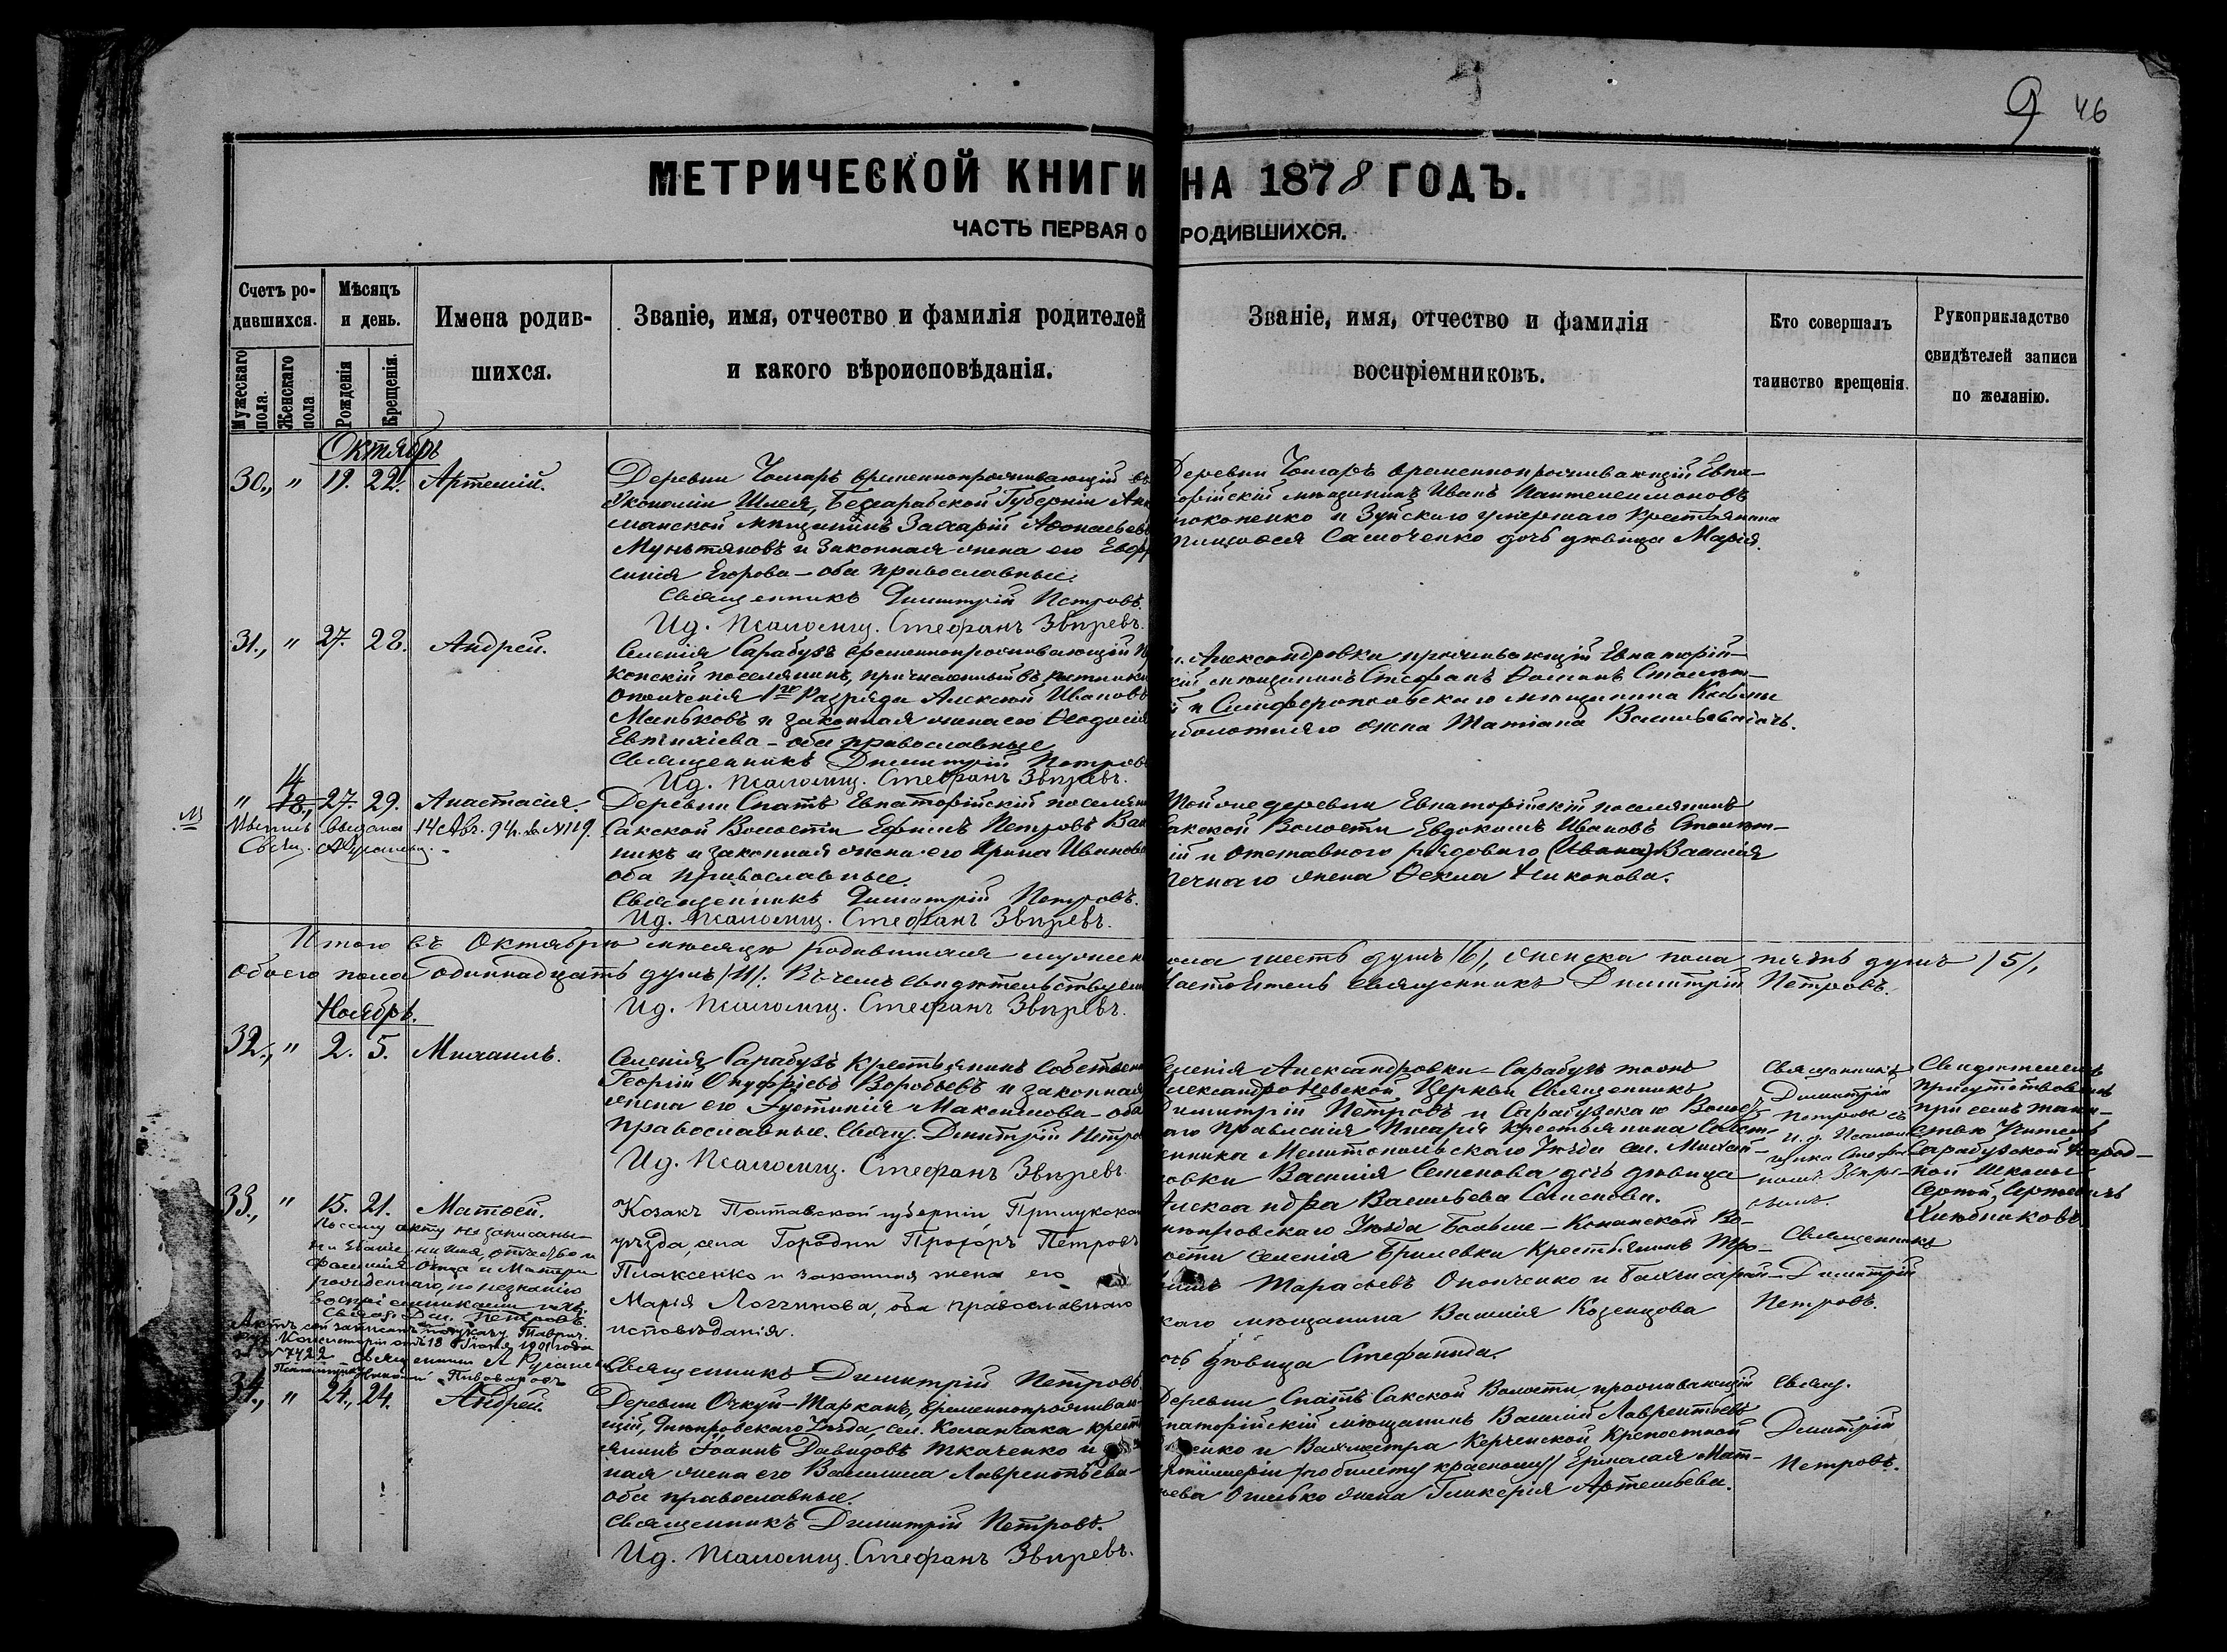 9 46
МЕТРИЧЕСКОЙ КНИГИ НА 1878 ГОДЪ.
ЧАСТЬ ПЕРВАЯ О РОДИВШИХСЯ.
Счетъ родившихся.
Мужескаго пола.
Женскаго пола
Мѣсяцъ и день.
Рожденія
Крещенія.
Имена родившихся.
Званіе, имя, отчество и фамилія родителей
и какого вѣроисповѣданія.
Званіе, имя, отчество и фамилія
воспріемниковъ.
Кто совершалъ
таинство крещенія.
Рукоприкладство
свидѣтелей записи
по желанію.
Октябрь
30., " 19. 22. Артемій.
Деревни Чонгаръ временнопроживающій въ
Экономіи Шлея, Бессарабской Губерніи
манской мѣщанинъ Захарій
Мунтяновъ и законная жена его Евфр
синія Егорова – оба православные.
Священникъ Димитрій Петровъ.
Ид. Псаломщ. Стефанъ Звѣревъ.
Деревни Чонгаръ временнопроживающій Евпа–
торійскій мѣщанинъ Иванъ Пантелеимоновъ
и Зуйскаго умершаго крестьянина
Самоченко дочь дѣвица Марія.
31., " 27. 28. Андрей.
Селенія Сарабузъ временнопроживающій
конскій поселянинъ, причисленный въ ратники
ополченія 1го Разряда Алексѣй Ивановъ
Маньковъ и законная жена его Ѳеодосія
Евтихіева – оба православные
Священникъ Димитрій Петровъ
Ид. Псаломщ. Стефанъ Звѣревъ.
Александровки проживающій Евпаторій–
скій мѣщанинъ Стефанъ
и Симферопольскаго мѣщанина
жена Татіана Васильева
" 4 18., 27. 29. Анастасія.
выдана 14 Авг. 94 г. за № 119.
Деревни Спатъ Евпаторійскій поселян
Сакской Волости Ефимъ Петровъ
никъ и законная жена его Ирина Иванова
оба православные.
Священникъ Димитрій Петровъ.
Ид. Псаломщ. Стефанъ Звѣревъ.
Той же деревни Евпаторійскій поселянинъ
Сакской Волости Евдокимъ Ивановъ
и отставного рядоваго (Ивана) Василія
жена Ѳекла Никонова.
Итого въ Октябрѣ мѣсяцѣ родившихся мужеска пола шесть душъ /6/, женска пола пять душъ /5/,
обоего пола одиннадцать душъ /11/. Въ чемъ свидѣтельствуемъ Настоятель священникъ Димитрій Петровъ.
Ид. Псаломщ. Стефанъ Звѣревъ.
Ноябрь.
32., " 2. 5. Михаилъ.
Селенія Сарабузъ крестьянинъ собствен
Георгій Онуфріевъ Воробьевъ и законная
жена его Іустинія Максимова – оба
православные. Свящ. Димитрій Петро
Ид. Псаломщ. Стефанъ Звѣревъ.
Селенія Александровки – Сарабузъ тожъ
Александро Невской Церкви Священникъ
Димитрій Петровъ и Сарабузскаго Волост
наго Правленія Писаря крестьянина собст–
венника Мелитопольскаго Уѣзда сел. Михай–
ловки Василія Семенова дочь дѣвица
Александра Васильева Семенова.
Священникъ
Димитрій
Петровъ съ
и. д. Псалом
щика Стефа
номъ Звѣре–
вымъ.
Свидѣтелемъ
присутствовалъ
при семъ таин–
ствѣ Учитель
Сарабузской Народ–
ной Школы
Сергѣй Сергѣевичъ
Хлюбниковъ
33., " 15. 21. Матѳей.
По сему акту не записаны
ни званіе, ни имя, отчество и
фамилія Отца и Матери
рожденнаго, по незнанію
воспріемниками ихъ.
Свящ. Дм. Петровъ.
Актъ сей записанъ по указу Таврич.
Консисторіи отъ 18 Іюня 1901 года
за № 7422 Священникъ А
Псаломщикъ Пивоваровъ
Козакъ Полтавской губерніи, Прилукскаго
уѣзда, села Городни Прохоръ Петровъ
Плаксенко и законная жена его
Марія Логгинова, оба православнаго
исповѣданія.
Священникъ Димитрій Петровъ.
Днѣпровскаго Уѣзда Больше – Копанской Во–
лости селенія Брилевки Крестьянинъ Тро–
Тарасьевъ Опонченко и Бахчисарай–
скаго мѣщанина Василія Козенцова
дочь дѣвица Стефанида.
Священникъ
Димитрій
Петровъ.
34., " 24., 24. Андрей.
Деревни Очкуй–Тарханъ, временнопроживаю–
щій, Днѣпровскаго Уѣзда, сел. Каланчака крест
янинъ Іоаннъ Давидовъ Ткаченко и
ная жена его Василиса Лаврентьева
оба православные.
Священникъ Димитрій Петровъ.
Ид. Псаломщ. Стефанъ Звѣревъ.
Деревни Спатъ Сакской Волости, проживающій
Евпаторійскій мѣщанинъ Василій Лаврентьевъ
и Вахмистра Керченской Крѣпостной
Артиллеріи /по билету красному/ Ермолая Мат–
вѣева жена Гликерія Артемьева.
Свящ.
Димитрій
Петровъ.